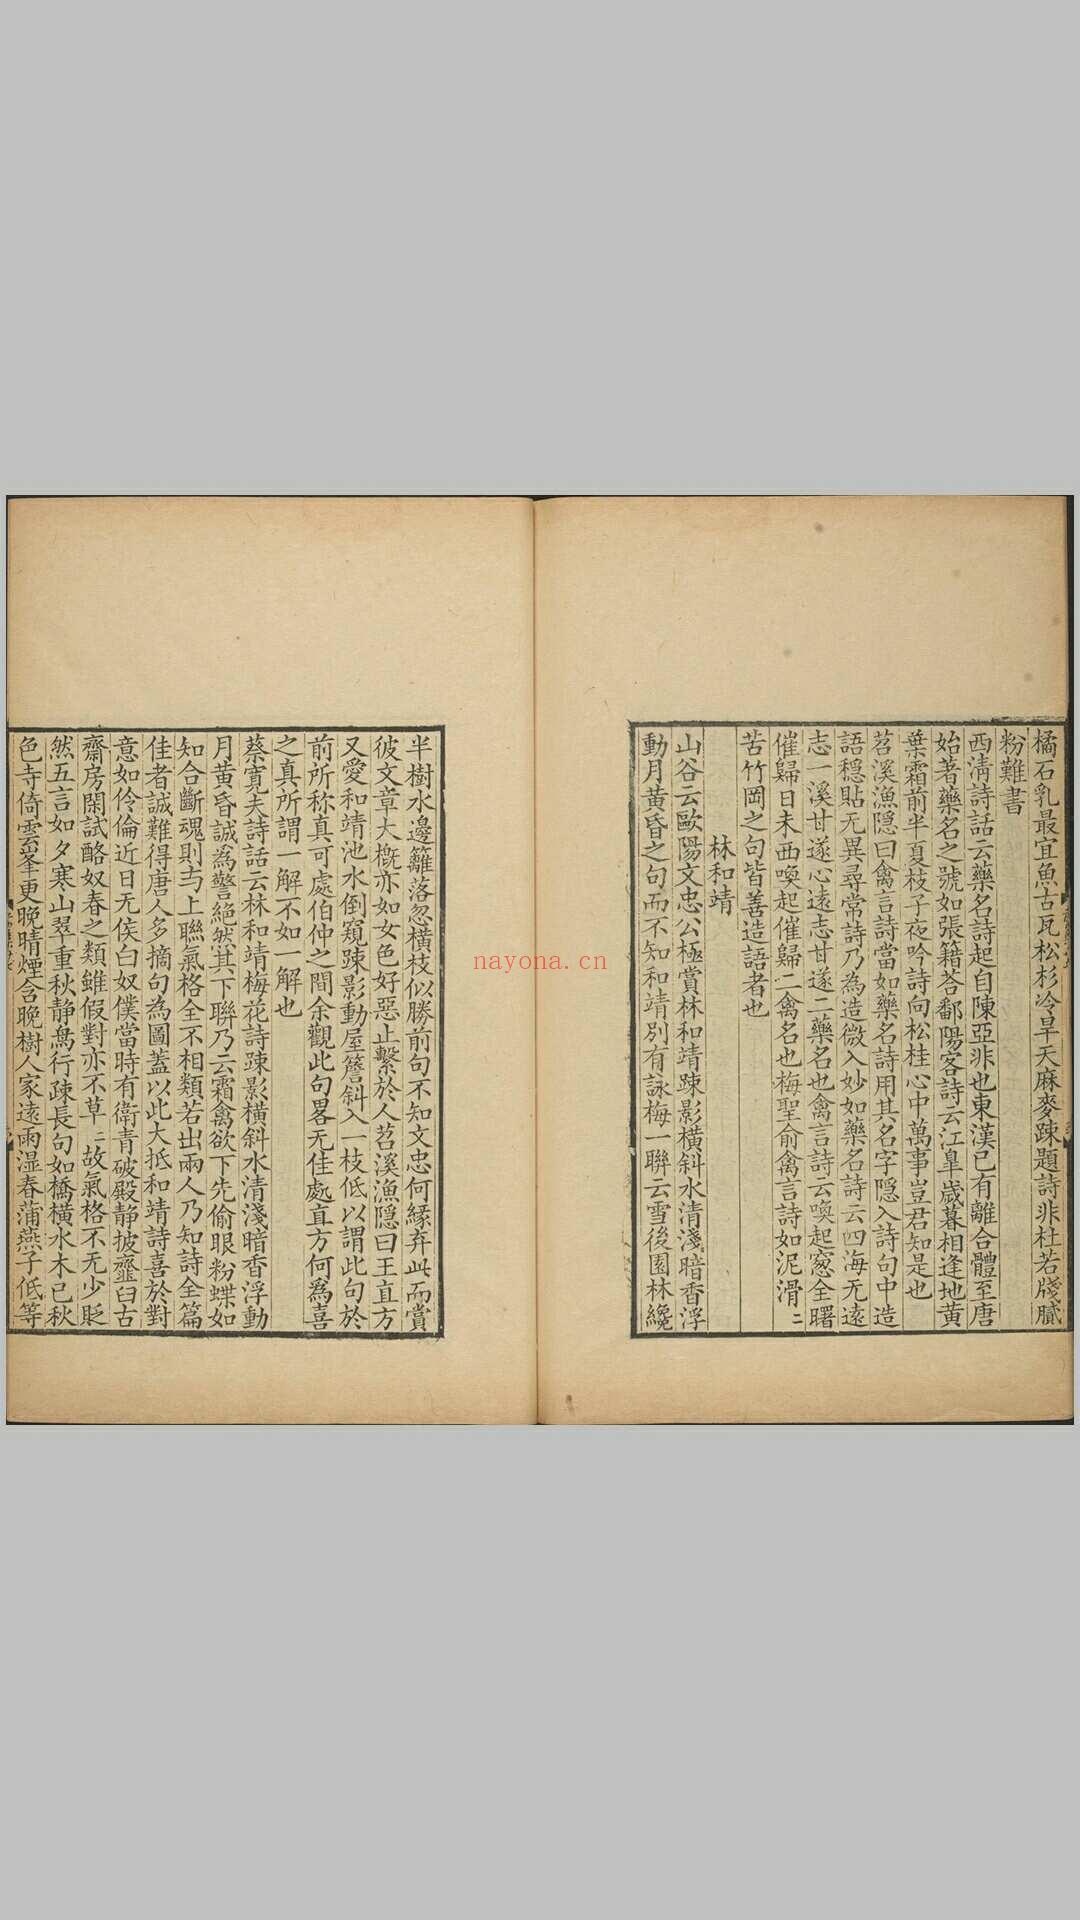 橘石乳最宜魚古瓦松杉冷旱天麻麥踈題詩非杜若牋膩
粉難書
西淸詩話云藥名詩起自陳亞非也東漢已有離合體至唐
始著藥名之號如張籍荅鄱陽客詩云江皐歲暮相逢地黄
葉霜前半夏枝子夜吟詩向松桂心中萬事豈君知是也
苕溪漁隠曰禽言詩當如藥名詩用其名字隠入詩句中造
語穩貼无異尋常詩乃為造微入妙如藥名詩云四海无遠
志一溪甘遂心遠志甘遂二藥名也禽言詩云喚起窓全曙
催歸日未西喚起催歸二禽名也梅聖俞禽言詩如泥滑〻
苦竹岡之句皆善造語者也
林和靖
山谷云歐陽文忠公極賞林和靖踈影橫斜水清淺暗香浮
動月黄昏之句而不知和靖別有詠梅一聯云雪後園林纔
半樹水邊籬落忽橫枝似勝前句不知文忠何縁弃此而賞
彼文章大概亦如女色好惡止繫於人苕溪漁隠曰王直方
又愛和靖池水倒窺踈影動屋簷斜入一枝低以謂此句於
前所称真可處伯仲之間余觀此句畧无佳處直方何爲喜
之真所謂一解不如一解也
蔡寛夫詩話云林和靖梅花詩踈影橫斜水清淺暗香浮動
月黄昏誠為警絶然其下聯乃云霜禽欲下先偷眼粉蝶如
知合斷魂則与上聯氣格全不相類若出兩人乃知詩全篇
佳者誠難得唐人多摘句為圖蓋以此大抵和靖詩喜於對
意如伶倫近日无侯白奴僕當時有衛青破殿静披虀臼古
齋房閑試酪奴春之類雖假對亦不草〻故氣格不无少貶
然五言如夕寒山翠重秋静鳥行疎長句如橋橫水木已秋
色寺倚雲峯更晚晴煙含晚樹人家遠雨湿春蒲燕子低等
nayona.cn